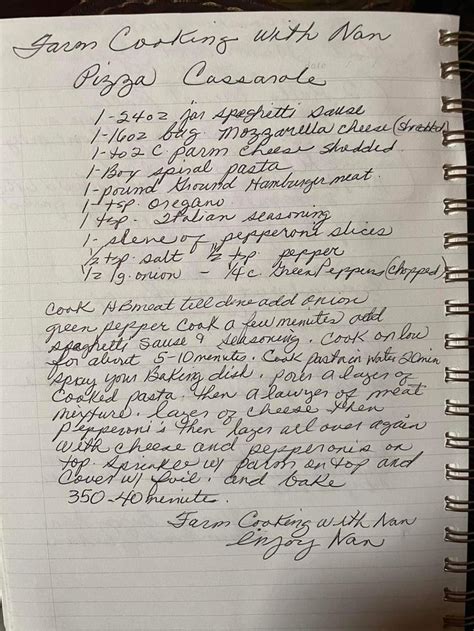 Farm Cooking with Nan
Pizza Cassarole
1-24oz jar spaghetti sause
1-16oz bag Mozzarella cheese (shredded)
1-to 2 C parm cheese shredded
1-Box spiral pasta
1-pound Ground Hamburger meat.
1 tsp. oregano
1 tsp. Italian seasoning
1- sleve of pepperoni slices
1/2 tsp. salt 1/2 tsp pepper
1/2 g. onion - 1/4 c. Green Peppers (chopped)
Cook HB meat till done add onion
green pepper cook a few minutes add
spaghetti sause & seasoning. Cook on low
for about 5-10 minutes. Cook Pasta in water 20 min
spray your Baking dish. pour a layer of
cooked pasta. then a lawyer of meat
mixture. layer of cheese then
Pepperoni's then layer all over again
with cheese and pepperoni's on
top. sprinkle w/ parm on top and
cover w/ foil. and bake
350-40 minutes.
Farm Cooking with Nan
enjoy Nan